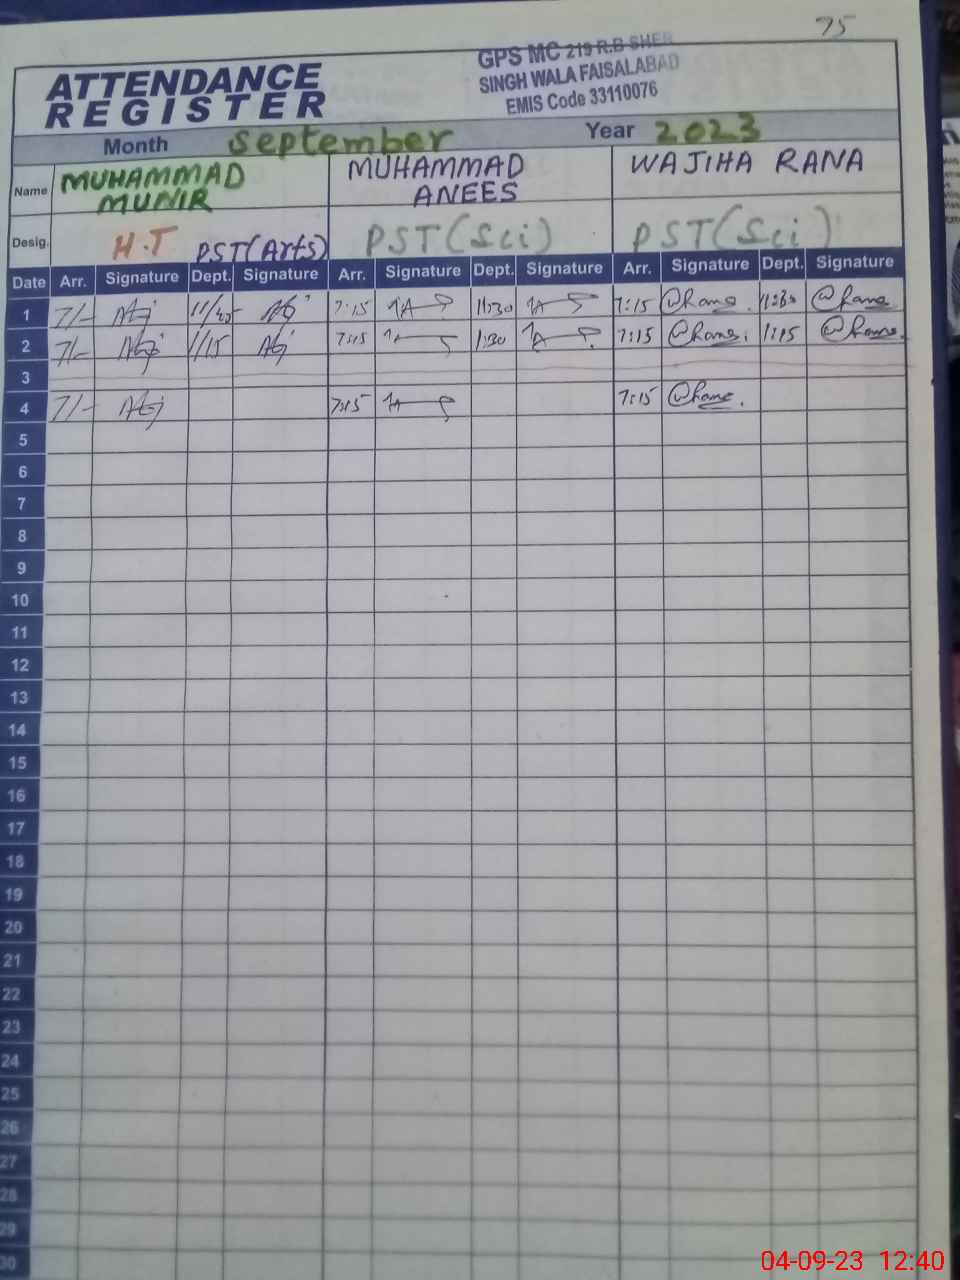 75
ATTENDANCE
REGISTER
GPS MC 219 R.B SHER
SINGH WALA FAISALABAD
EMIS Code 33110076
Month September Year 2023
Name MUHAMMAD MUNIR MUHAMMAD ANEES WAJIHA RANA
Desig. H.T PST(Arts) PST(Sci) PST(Sci)
Date Arr. Signature Dept. Signature Arr. Signature Dept. Signature Arr. Signature Dept. Signature
1 7/- 11/45 7:15 11:30 7:15 11:30
2 7/- 1/15 7:15 1:30 7:15 1:15
3
4 7/- 7:15 7:15
5
6
7
8
9
10
11
12
13
14
15
16
17
18
19
20
21
22
23
24
25
26
27
28
29
30
04-09-23 12:40